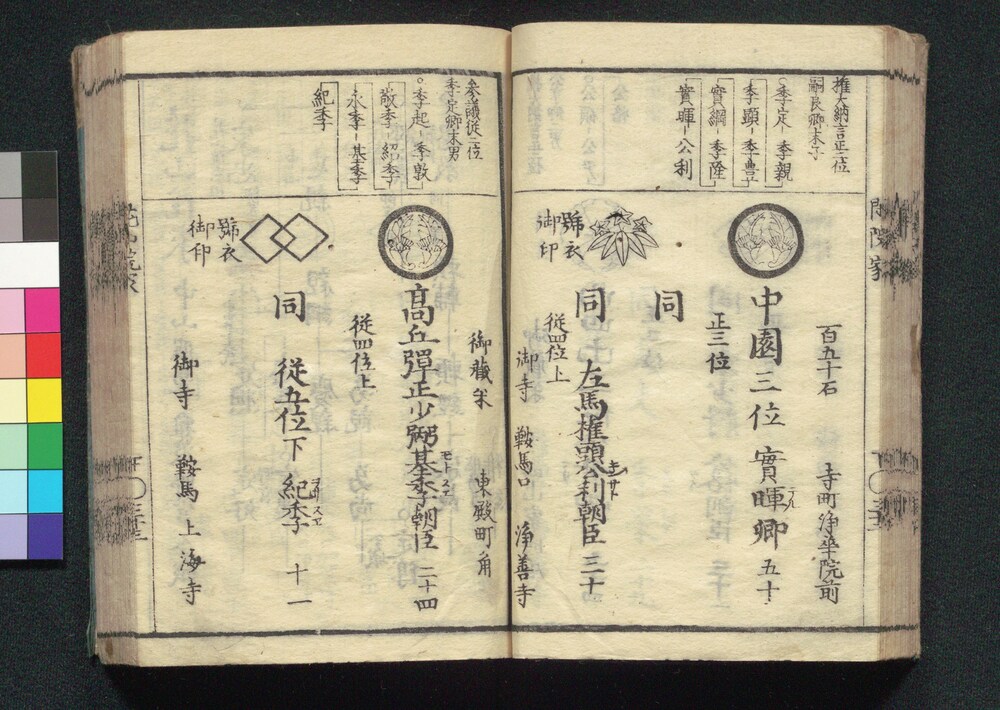 權大納言正二位
嗣良卿末子
○季定-季親
季顕-季豊
實綱-季隆
實暉-公利
百五十石
寺町浄華院前
中園三位 實暉卿 五十
正三位
同
號衣
御印
同 左馬權頭公利朝臣 三十
キンサト
從四位上
御寺 鞍馬口 浄善寺
參議從二位
季定卿末男
○季起-季敦
敬季-紹季
永季-基季
紀季
御蔵米
東殿町角
高丘彈正少弼基季朝臣 二十四
モトスヱ
從四位上
號衣
御印
同 從五位下 紀季 十一
御寺 鞍馬 上海寺